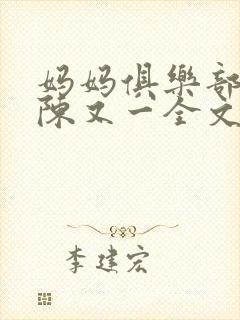 妈妈俱樂部
陳又一全文
李建宏